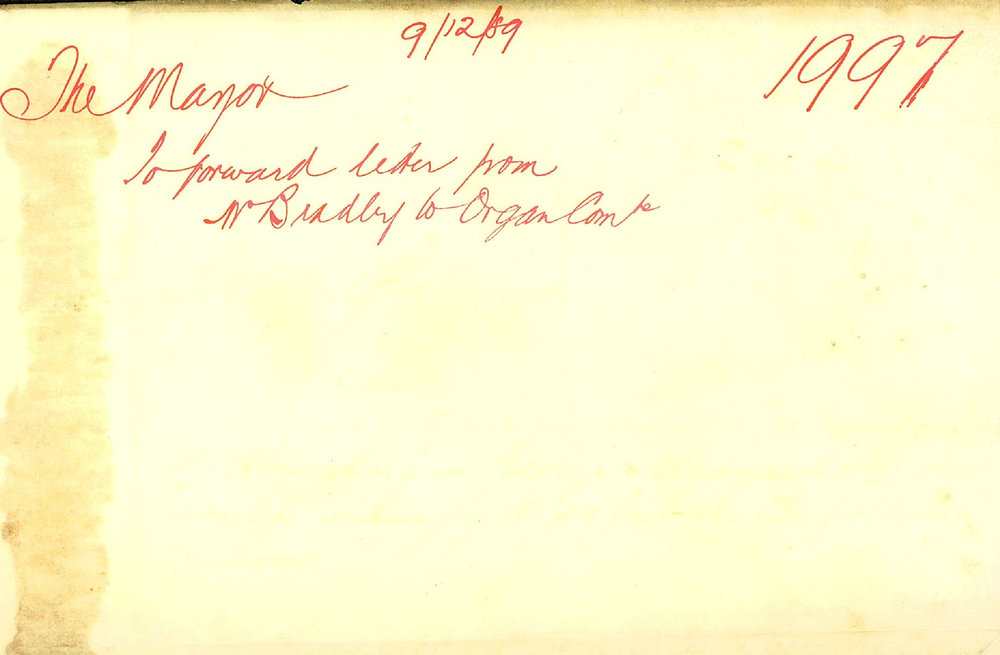 9/12/89
1997
The Mayor
To forward letter from
Mr Bradley to Organ Comte